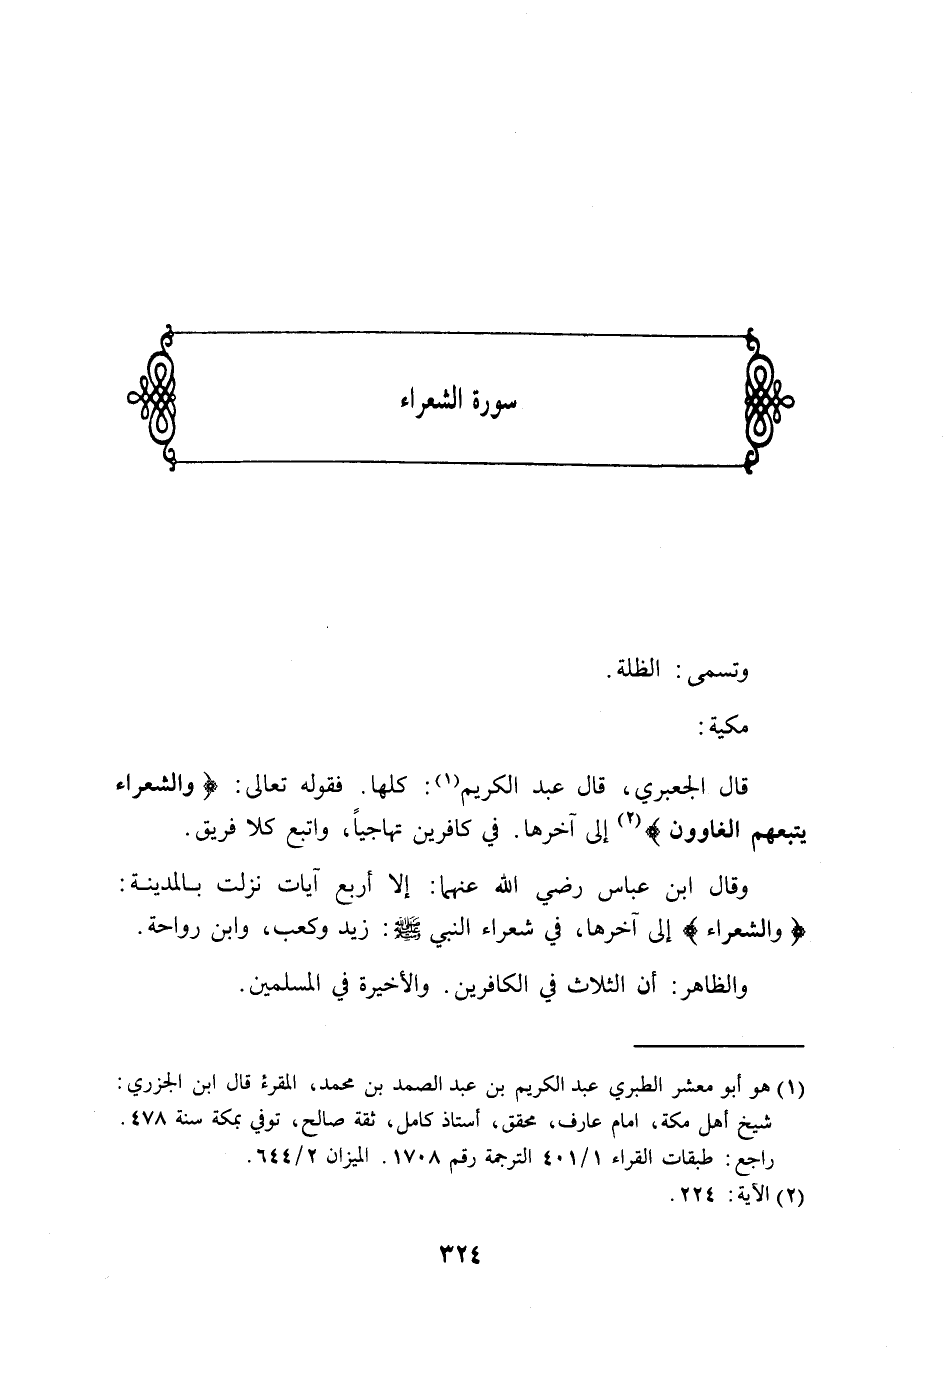 سورة الشعراء
وتسمى: الظلة.
مكية:
قال الجعبري، قال عبد الكريم(١): كلها. فقوله تعالى: ﴿ والشعراء
يتبعهم الغاوون ﴾(٢) إلى آخرها. في كافرين تهاجياً، واتبع كلا فريق.
وقال ابن عباس رضي الله عنهما: إلا أربع آيات نزلت بالمدينة:
﴿ والشعراء ﴾ إلى آخرها، في شعراء النبي ﷺ: زيد وكعب، وابن رواحة.
والظاهر: أن الثلاث في الكافرين. والأخيرة في المسلمين.
(١) هو أبو معشر الطبري عبد الكريم بن عبد الصمد بن محمد، المقرئ قال ابن الجزري:
شيخ أهل مكة، امام عارف، محقق، أستاذ كامل، ثقة صالح، توفي بمكة سنة ٤٧٨.
راجع: طبقات القراء ٤٠١/١ الترجمة رقم ١٧٠٨. الميزان ٦٤٤/٢.
(٢) الآية: ٢٢٤.
٣٢٤